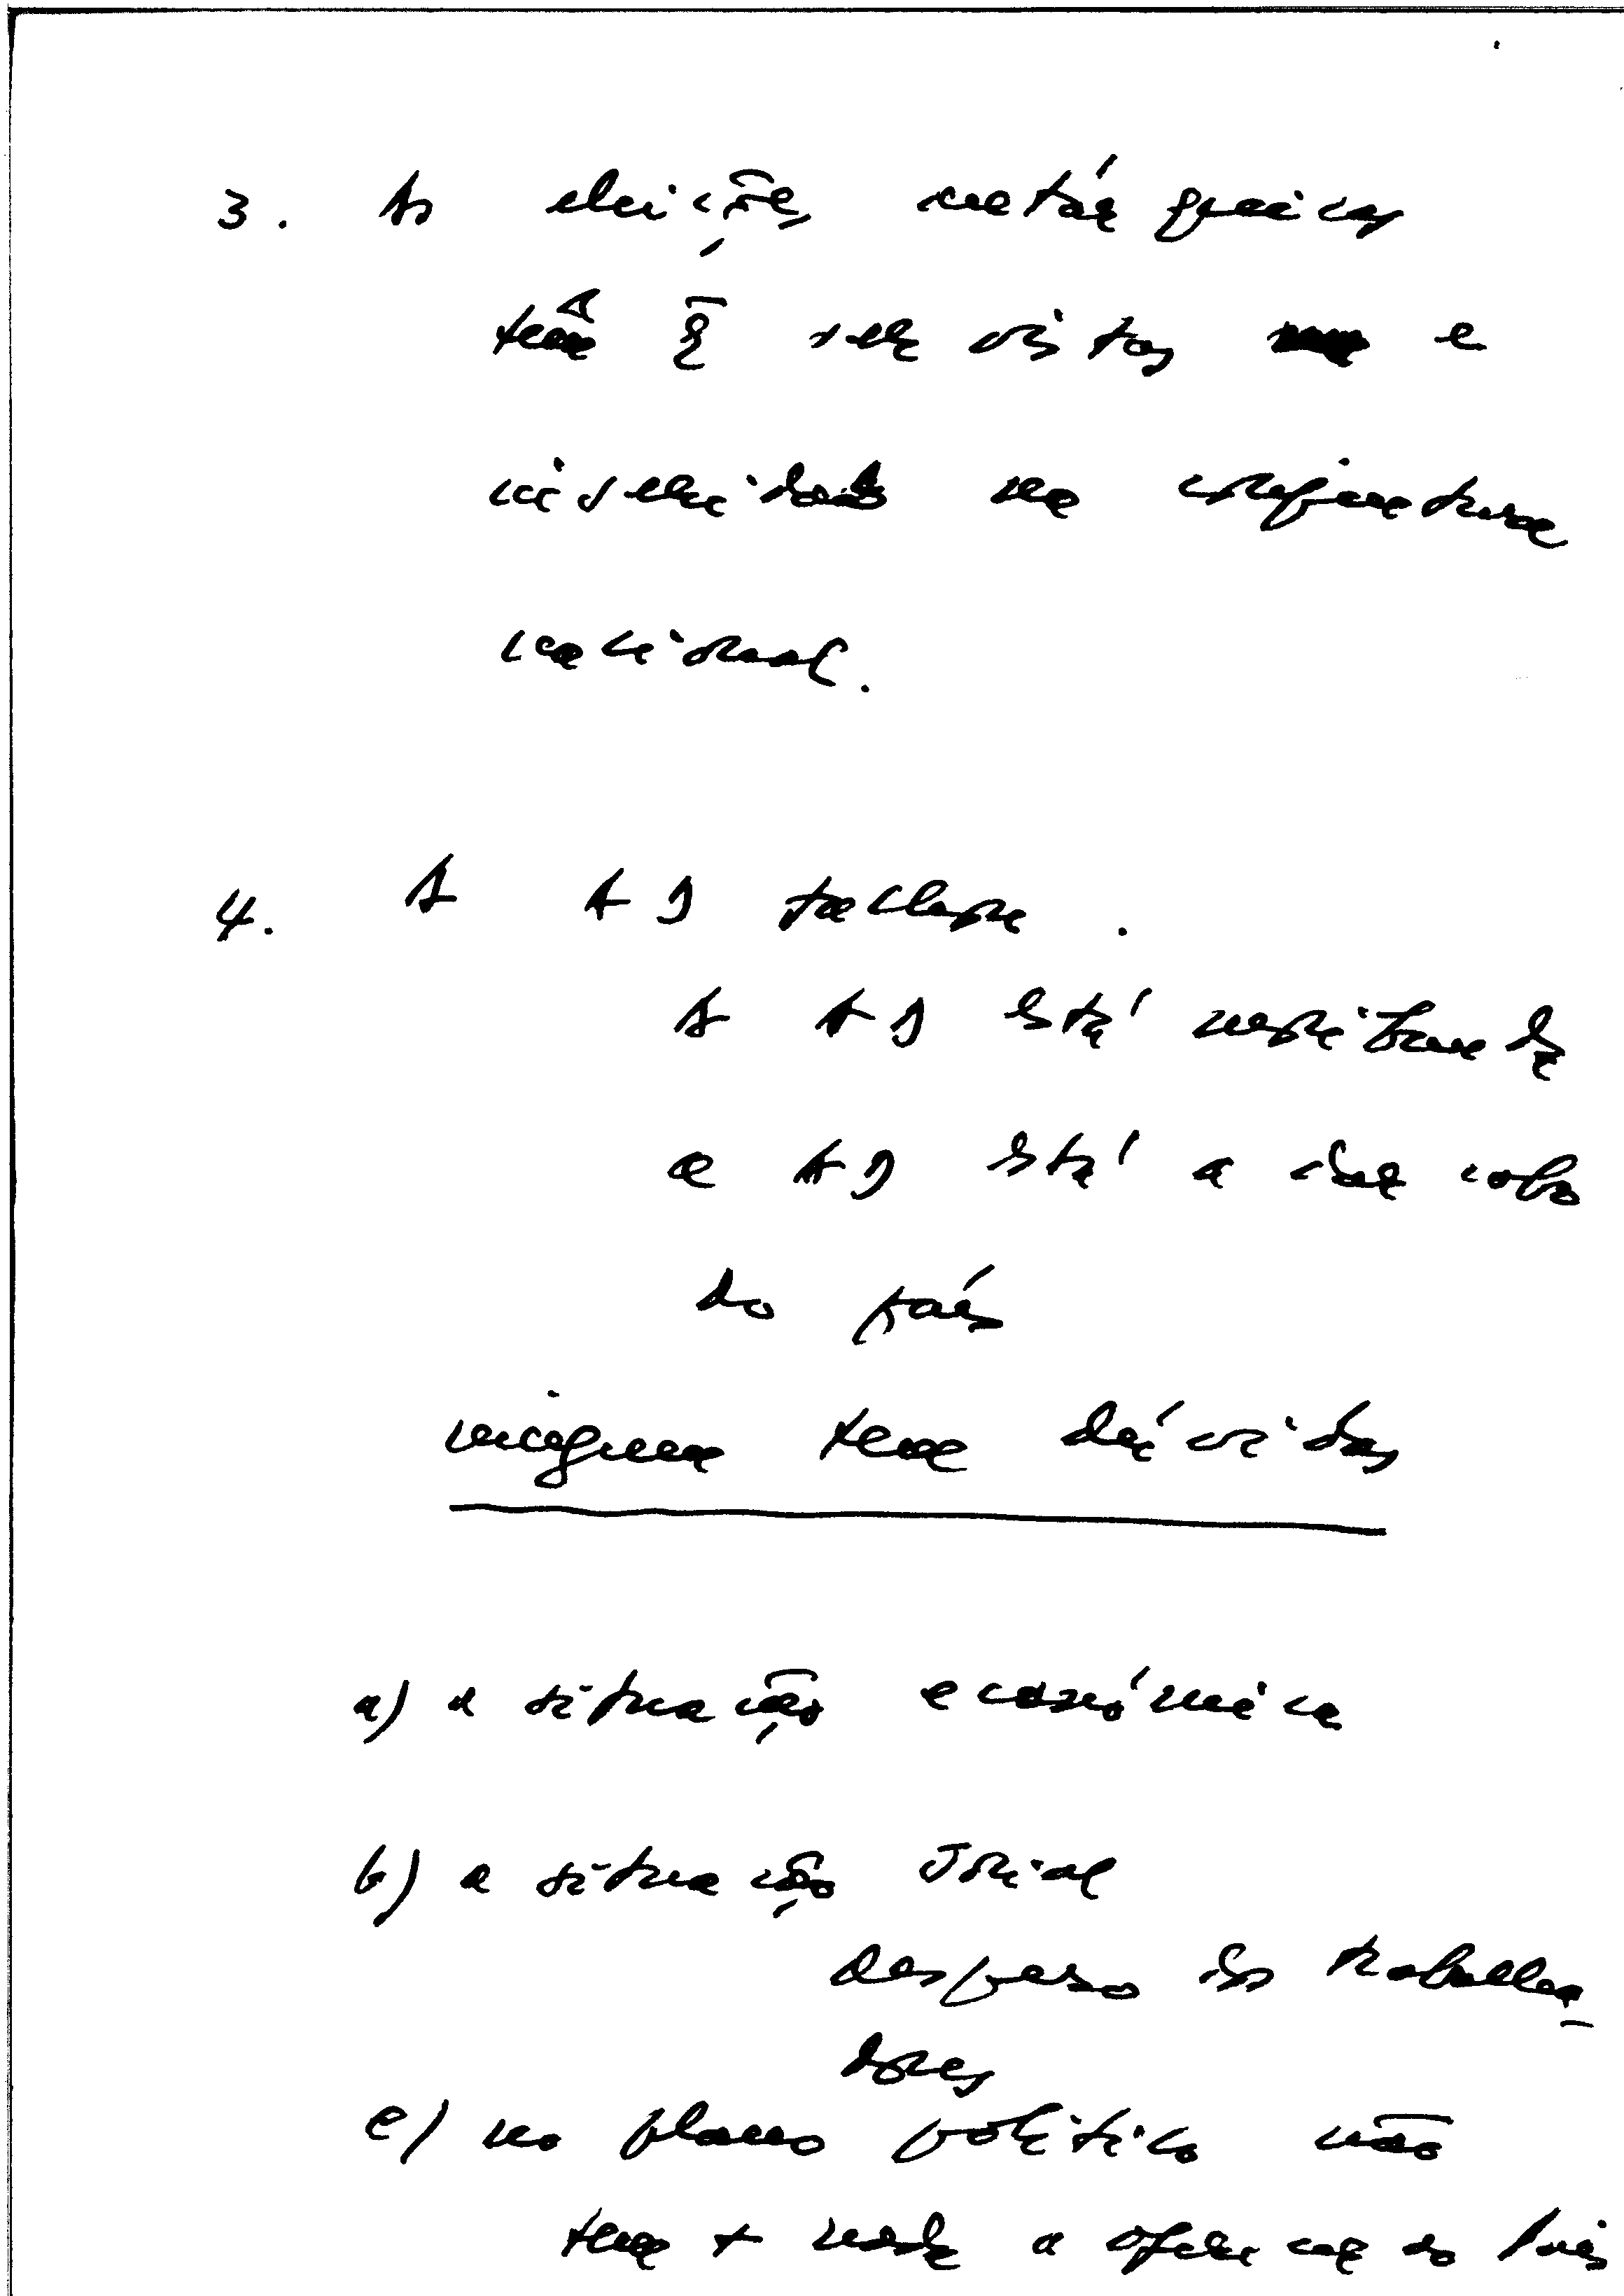 3. As eleições autárquicas
têm q̄ ser vistas e
inseridas na conjuntura
nacional.
4. A AD falhou.
A AD está moribunda
a AD está a dar cabo
do país
ninguem tem dúvidas
a) a situação económica
b) a situação social
desprezo dos trabalha_
dores
c) no plano político não
tem + nada a oferecer ao País